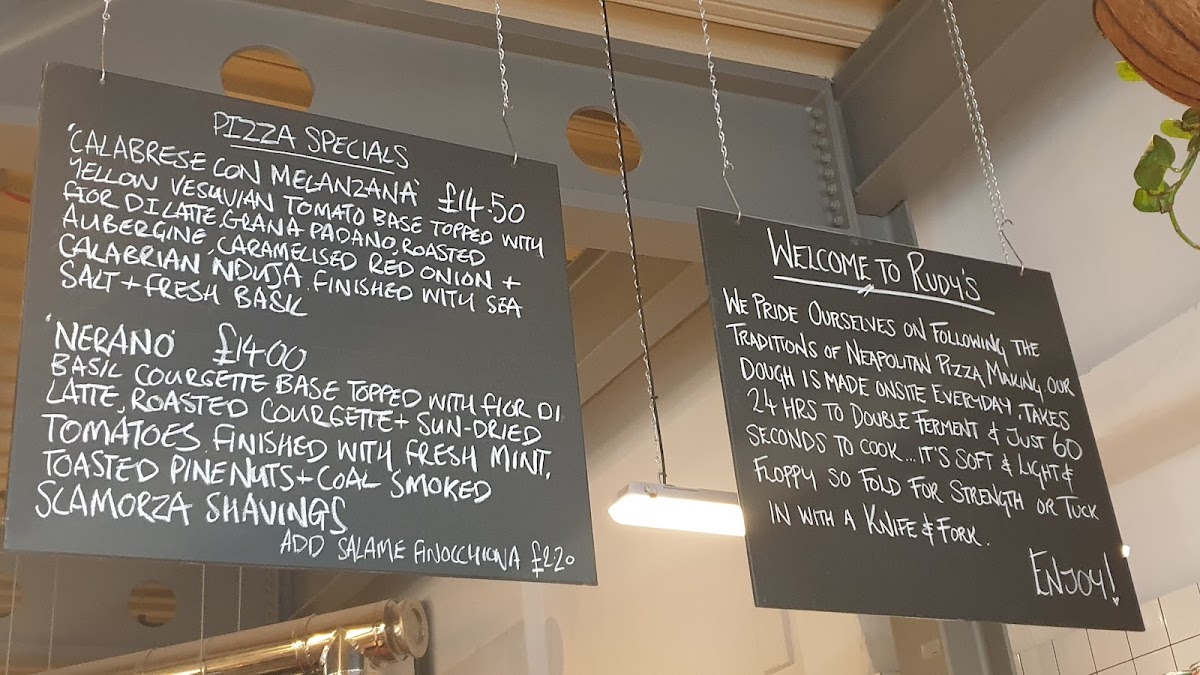 PIZZA SPECIALS
'CALABRESE CON MELANZANA' £14.50
YELLOW VESUVIAN TOMATO BASE TOPPED WITH
FIOR DI LATTE, GRANA PADANO, ROASTED
AUBERGINE, CARAMELISED RED ONION +
CALABRIAN NDUJA. FINISHED WITH SEA
SALT + FRESH BASIL
'NERANO' £14.00
BASIL COURGETTE BASE TOPPED WITH FIOR DI
LATTE, ROASTED COURGETTE + SUN-DRIED
TOMATOES. FINISHED WITH FRESH MINT,
TOASTED PINENUTS + COAL SMOKED
SCAMORZA SHAVINGS
ADD SALAME FINOCCHIONA £2.20
WELCOME TO RUDY'S
WE PRIDE OURSELVES ON FOLLOWING THE
TRADITIONS OF NEAPOLITAN PIZZA MAKING, OUR
DOUGH IS MADE ONSITE EVERYDAY, TAKES
24 HRS TO DOUBLE FERMENT & JUST 60
SECONDS TO COOK... IT'S SOFT & LIGHT &
FLOPPY SO FOLD FOR STRENGTH OR TUCK
IN WITH A KNIFE & FORK.
ENJOY!